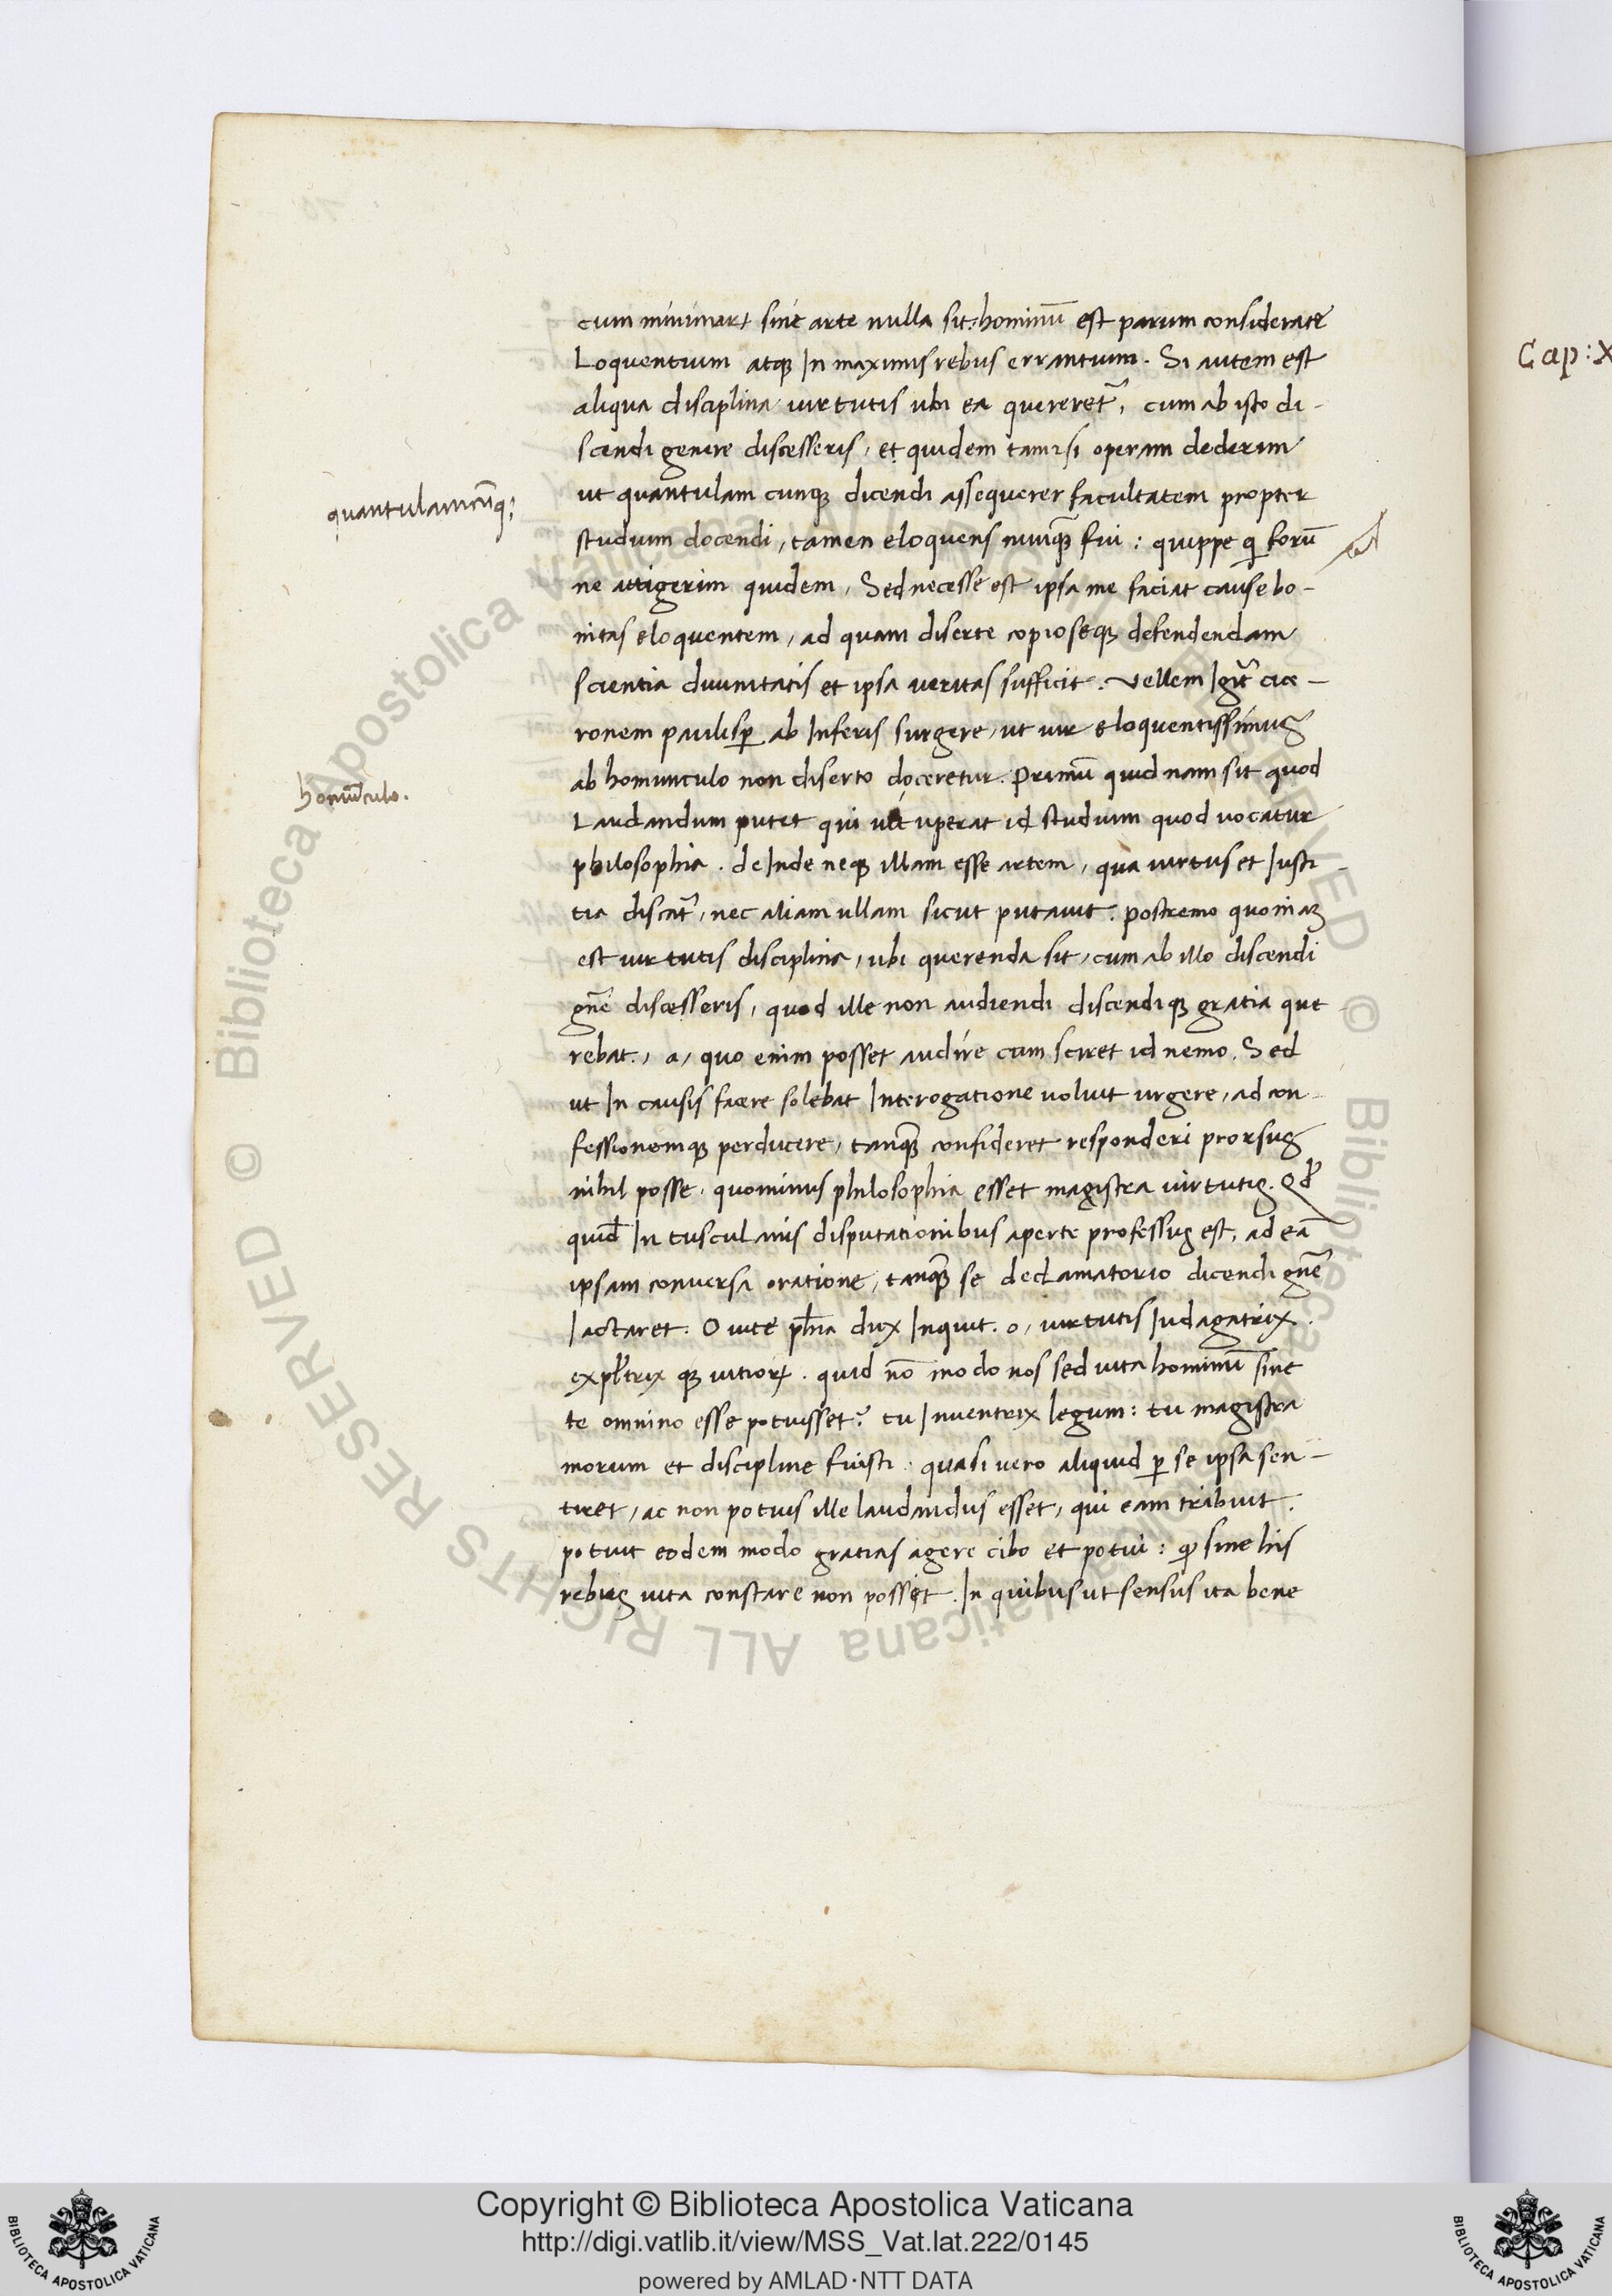 cum minimarꝫ sine arte nulla sit: hominū est parum considerate
Loquentium atqꝫ In maximis rebus errantium. Si autem est
aliqua disciplina uirtutis ubi ea quereret̃, cum ab isto di-
scendi genere discesseris, et quidem tamẽsi operam dederim
quantulamcũqꝫ
ut quantulam cunqꝫ dicendi assequerer facultatem propter
studium docendi, tamen eloquens nunqꝫ̃ fui: quippe q̃ forũ
ne attigerim quidem, Sed necesse est ipsa me faciat cause bo-
nitas eloquentem, ad quam diserte copioseqꝫ defendendam
scientia diuinitatis et ipsa ueritas sufficit. Vellem Igit̃ cice-
ronem paulisꝑ ab Inferis surgere, ut uir eloquentissimus
homũculo.
ab homunculo non diserto doceretur. Primũ quid nam sit quod
Laudandum putet qui uituperat id studium quod uocatur
philosophia. deInde neqꝫ illam esse artem, qua uirtus et Iusti-
tia discat̃, nec aliam ullam sicut putauit. postremo quoniaꝫ
est uirtutis disciplina, ubi querenda sit, cum ab illo discendi
gñe discesseris, quod ille non audiendi discendiqꝫ gratia que
rebat., a, quo enim posset audire cum sciret id nemo. Sed
ut In causis facere solebat Interogatione uoluit urgere, ad con-
fessionemqꝫ perducere, tanqꝫ̃ confideret responderi prorsus
nihil posse, quominus philosophia esset magistra uirtutis. Qđ
quid̃ In tusculanis disputationibus aperte professus est, ad eã
ipsam conuersa oratione, tanqꝫ̃ se declamatorio dicendi gñe
Iactaret. O uite ph̃ia dux Inquit. o, uirtutis Indagatrix.
expl̃trix qꝫ uitioꝝ. quid nõ modo nos sed uita hominũ sine
te omnino esse potuisset? tu Inuentrix legum: tu magistra
morum et discipline fuisti. quasi uero aliquid ꝑ se ipsa sen-
tiret, ac non potius ille laudandus esset, qui eam tribuit.
potuit eodem modo gratias agere cibo et potui: ꝙ sine his
rebus uita constare non posset. In quibus ut sensus ita bene
Cap: X
Copyright © Biblioteca Apostolica Vaticana
http://digi.vatlib.it/view/MSS_Vat.lat.222/0145
powered by AMLAD·NTT DATA
BIBLIOTECA APOSTOLICA VATICANA
BIBLIOTECA APOSTOLICA VATICANA
© Biblioteca Apostolica Vaticana ALL RIGHTS RESERVED © Biblioteca Apostolica Vaticana ALL RIGHTS RESERVED